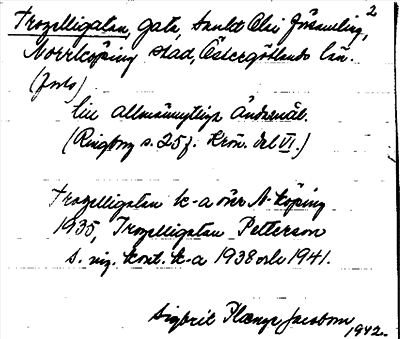 Trozelligatan, gata, Sankt Olai församling, 2
Norrköping stad, Östergötlands län.
(forts)
till allmännyttige ändamål.
(Ringborg s. 25 f. Krön. del VI.)
Trozelligatan k-a över N-köping
1935, Trozelligatan Petterson
s. reg. kont. k-a 1938 och 1941.
Sigbrit Plænge Jacobson
1942.